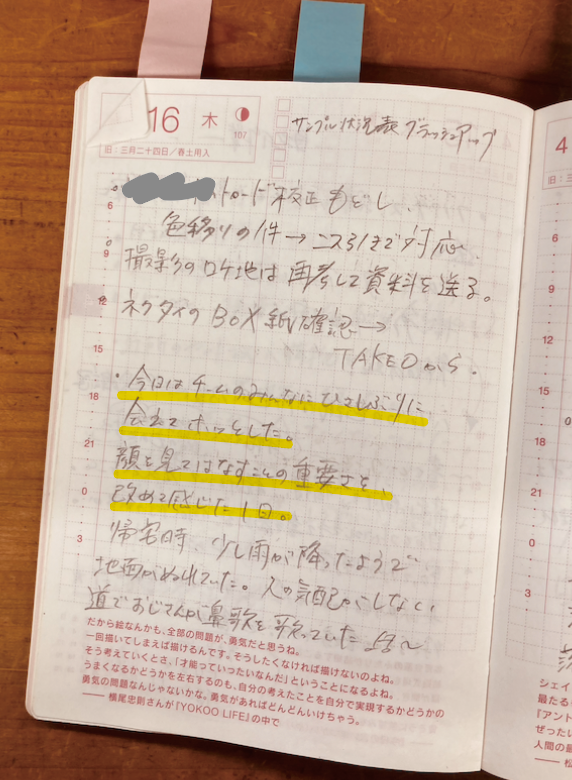 16 木
107
旧：三月二十四日／春土用入
サンプル状況表 ブラッシュアップ
トロード校正もどし、
色移りの件→ニス引きで対応。
撮影のロケ地は再考して資料を送る。
ネクタイのBOX紙確認→
TAKEOから。
・今日はチームのみんなにひさしぶりに
会えてホッとした。
顔を見てはなすことの重要さを、
改めて感じた1日。
帰宅時、少し雨が降ったようで
地面がぬれていた。人の気配がしない
道でおじさんが鼻歌を歌っていた
6
9
12
15
18
21
0
3
だから絵なんかも、全部の問題が、勇気だと思うね。
一回描いてしまえば描けるんです。そうしたくなければ描けないのよね。
そう考えていくとさ、「才能っていったいなんだ」ということになるよね。
うまくなるかどうかを左右するのも、自分の考えたことを自分で実現するかどうかの
勇気の問題なんじゃないかな。勇気があればどんどんいけちゃう。
―― 横尾忠則さんが『YOKOO LIFE』の中で
4
旧：三
6
9
12
15
0
3
シェイ
最たる
『アント
ぜったい
人間の最
―― 松